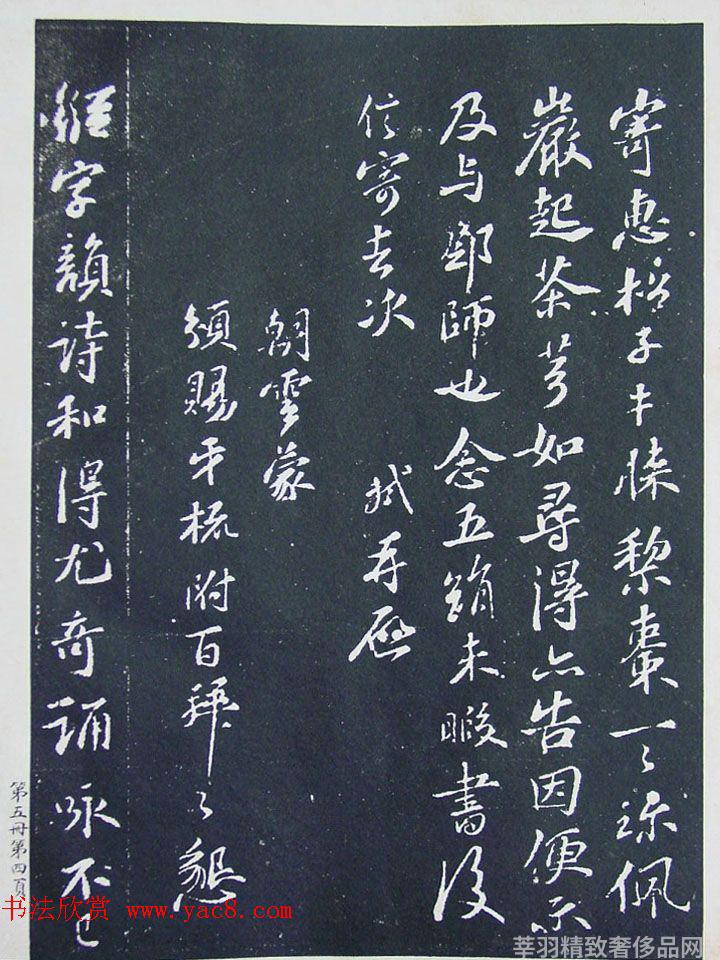 寄惠栝子才悚梨棗一〻珎佩
巖起茶芎如尋得亦告因便示
及与鄰師也念五鎖未暇書後
信寄去次 軾再啟
朝雲蒙
頒賜牙梳附百拜〻懇
字韻詩和得尤奇誦咏不已
第五冊第四頁
书法欣赏 www.yac8.com
莘羽精致奢侈品网